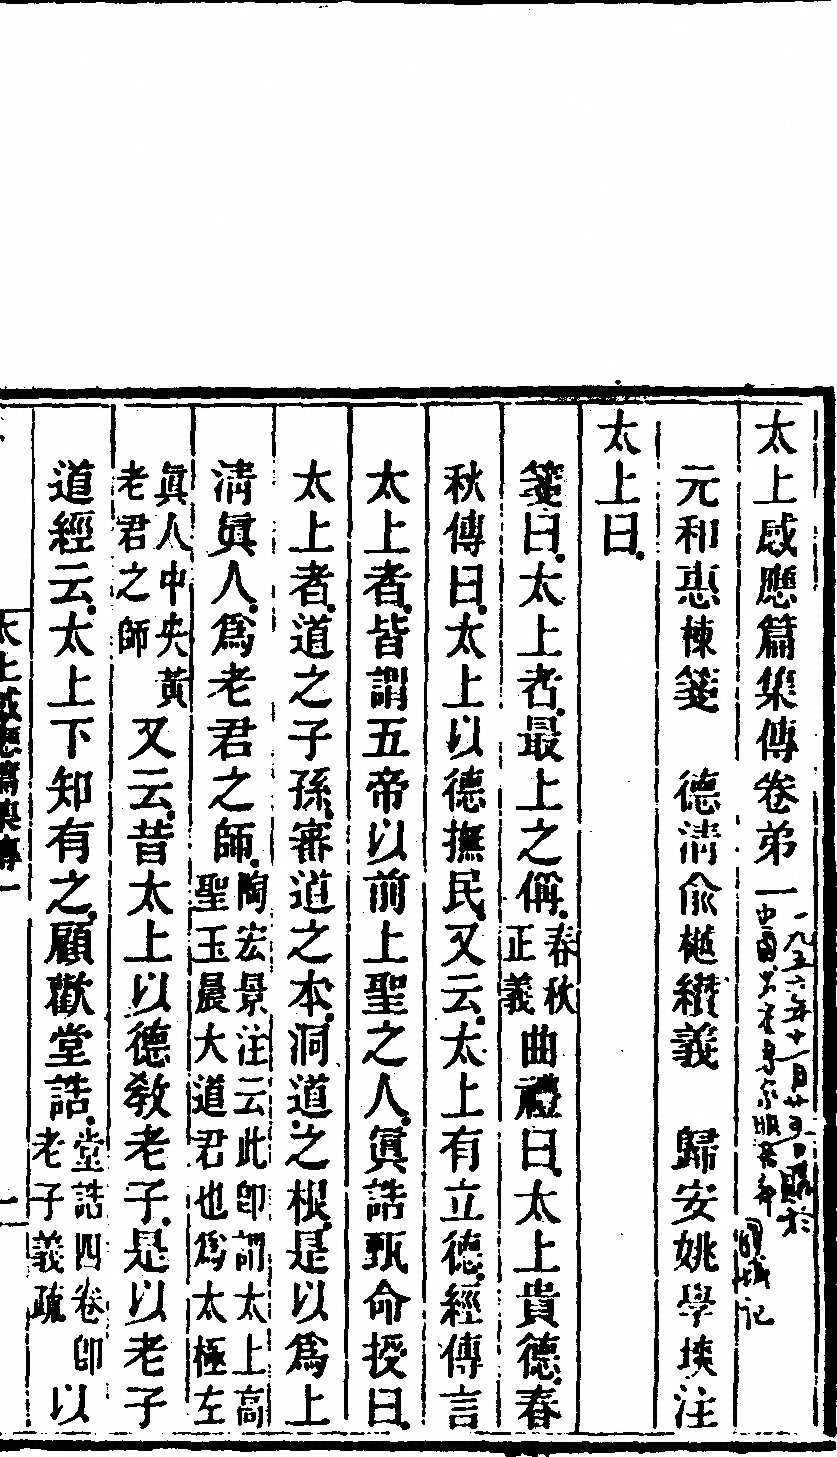 太上感應篇集傳卷弟一
元和惠棟箋　德清俞樾纘義　歸安姚學塽注
太上曰.
箋曰.太上者.最上之偁.春秋正義曲禮曰.太上貴德.春
秋傳曰.太上以德撫民.又云.太上有立德.經傳言
太上者.皆謂五帝以前上聖之人.眞誥甄命授曰.
太上者.道之子孫.審道之本.洞道之根.是以爲上
清眞人.爲老君之師.陶宏景注云此卽謂太上高聖玉晨大道君也爲太極左
眞人中央黃老君之師又云.昔太上以德教老子.是以老子
道經云.太上下知有之.顧歡堂誥.堂誥四卷卽老子義疏以
太上感應篇集傳一
一